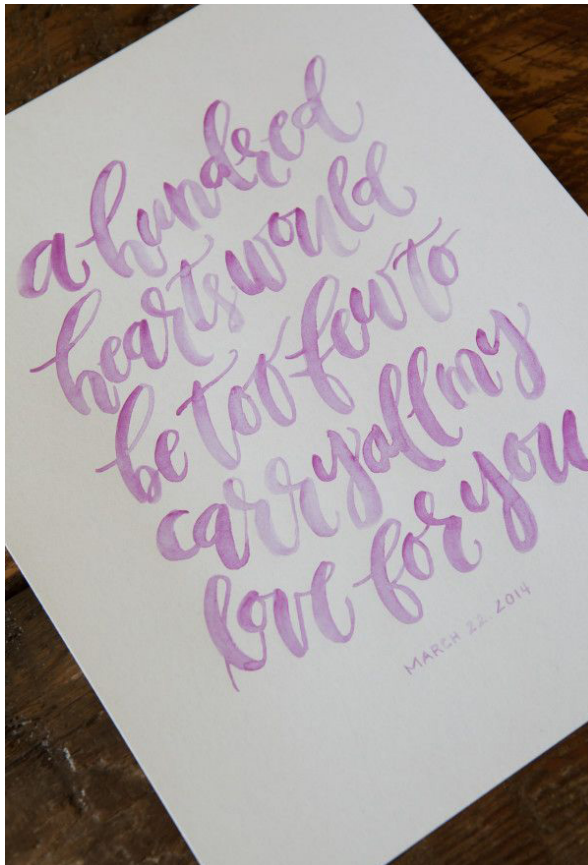 a hundred
hearts would
be too few to
carry all my
love for you
MARCH 22. 2014